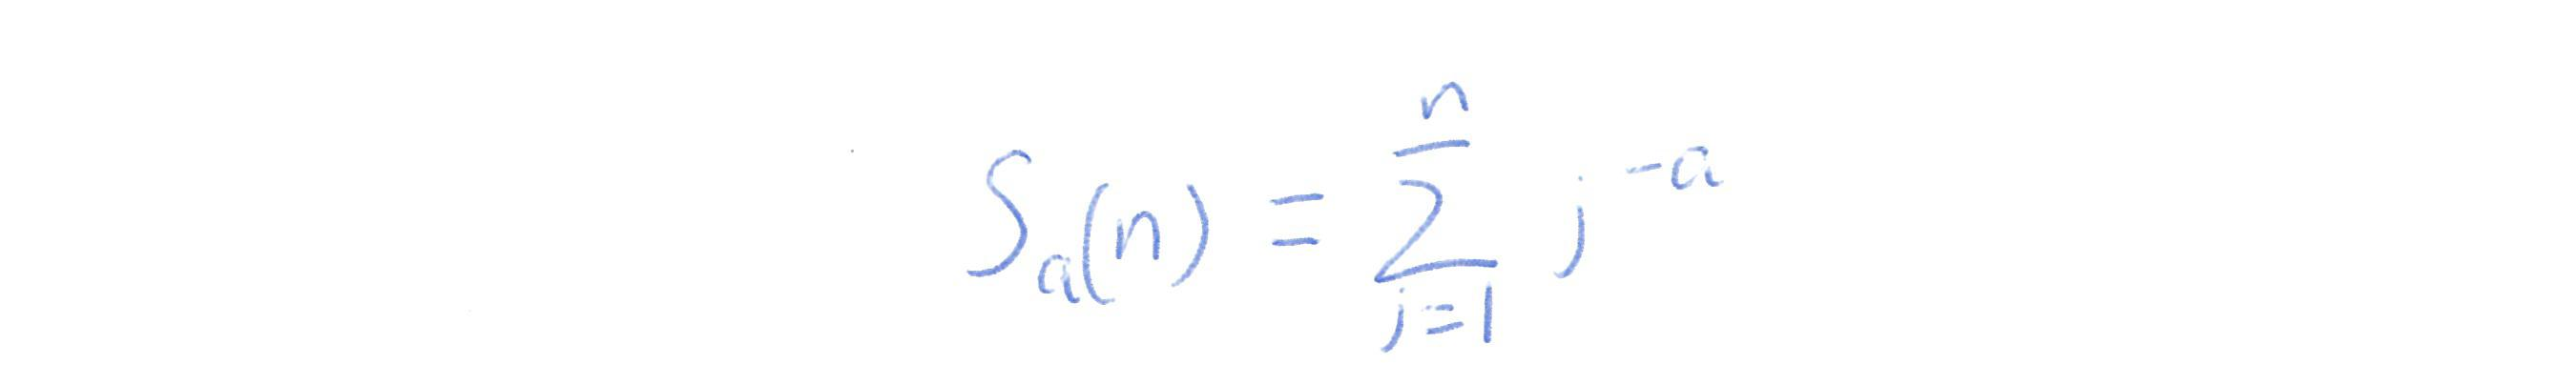 S_a(n) = \sum_{j=1}^{n} j^{-a}